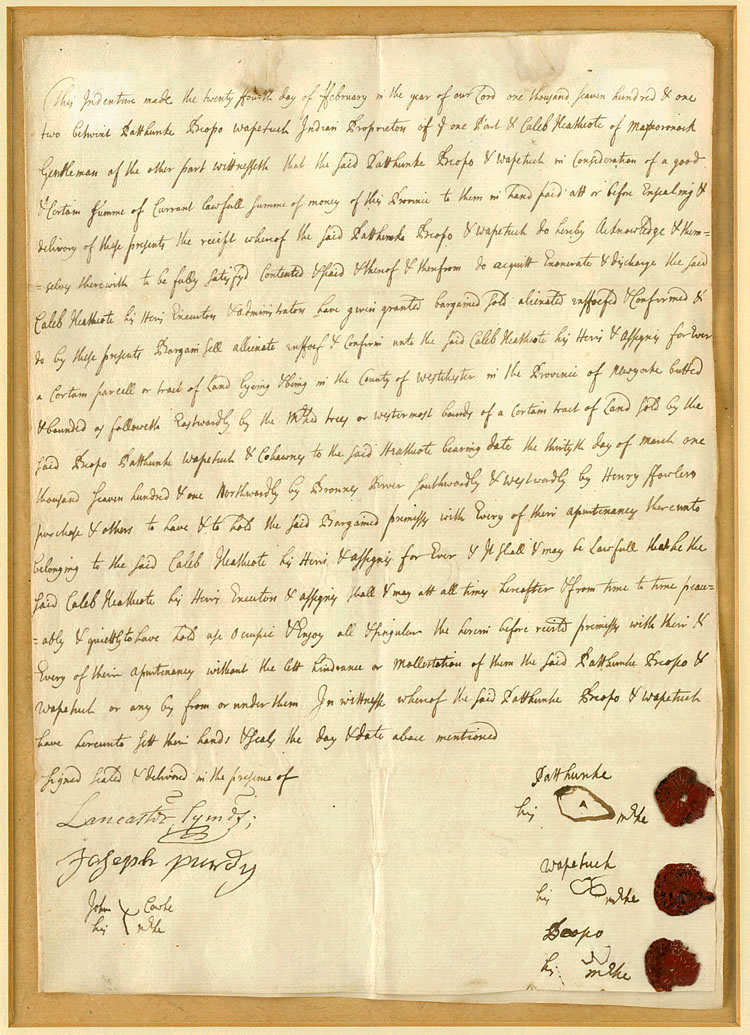 This Indenture made the twenty ffourth day of ffebruary in the year of our Lord one thousand seaven hundred & one
two betwixt Patthunke Beopo Wapetuch Indian Proprietors of ye one Part & Caleb Heathcote of Mamaronock
Gentleman of the other part wittnesseth that the said Patthunke Beopo & wapetuch in Consideration of a good
& Certain Summe of Currant lawfull Summe of money of this Province to them in hand paid att or before Ensealing &
delivery of these presents the receipt whereof the said Patthunke Beopo & wapetuch do hereby Acknowledge & them=
=selvs therewith to be fully satisfyd Contented & paid & thereof & therefrom do acquitt Exonerate & discharge the said
Caleb Heathcote his Heirs Executors & administrators have given granted bargained sold alienated enffoefed & Confirmed &
do by these presents Bargain sell allienate enffoef & Confirm unto the said Caleb Heathcote his Heirs & Assigns for Ever
a Certain parcell or tract of Land Lyeing & being in the County of Westchester in the Province of Newyorke butted
& bounded as followeth Eastwardly by the Mrked trees or westermost bounds of a Certain tract of Land sold by the
said Beopo Patthunke wapetuch & Cohawney to the said Heathcote bearing date the thirtyth day of march one
thousand seaven hundred & one Northwardly by Bronnxs River Southwardly & westwardly by Henry ffowlers
purchase & others to have & to hold the said Bargained premisses with Every of their apurtenancy thereunto
belonging to the said Caleb Heathcote his Heirs & assigns for Ever & It shall & may be Lawfull that he the
said Caleb Heathcote his Heirs Executors & assigns shall & may att all times hereafter & from time to time peac=
=ably & quiettly to have hold use Occupie & Enjoy all & singular the herein before recited premisses with their &
Every of their apurtenancy without the lett hinderance or mollestation of them the said Patthunke Beopo &
wapetuch or any by from or under them In wittnesse whereof the said Patthunke Beopo & wapetuch
have hereunto sett their hands & seals the day & date above mentioned
Signed sealed & delivered in the presence of
Lancaster Symes;
Joseph Purdy
John Cooke
his mrke
Patthunke
his mrke
wapetuch
his mrke
Beopo
his mrke